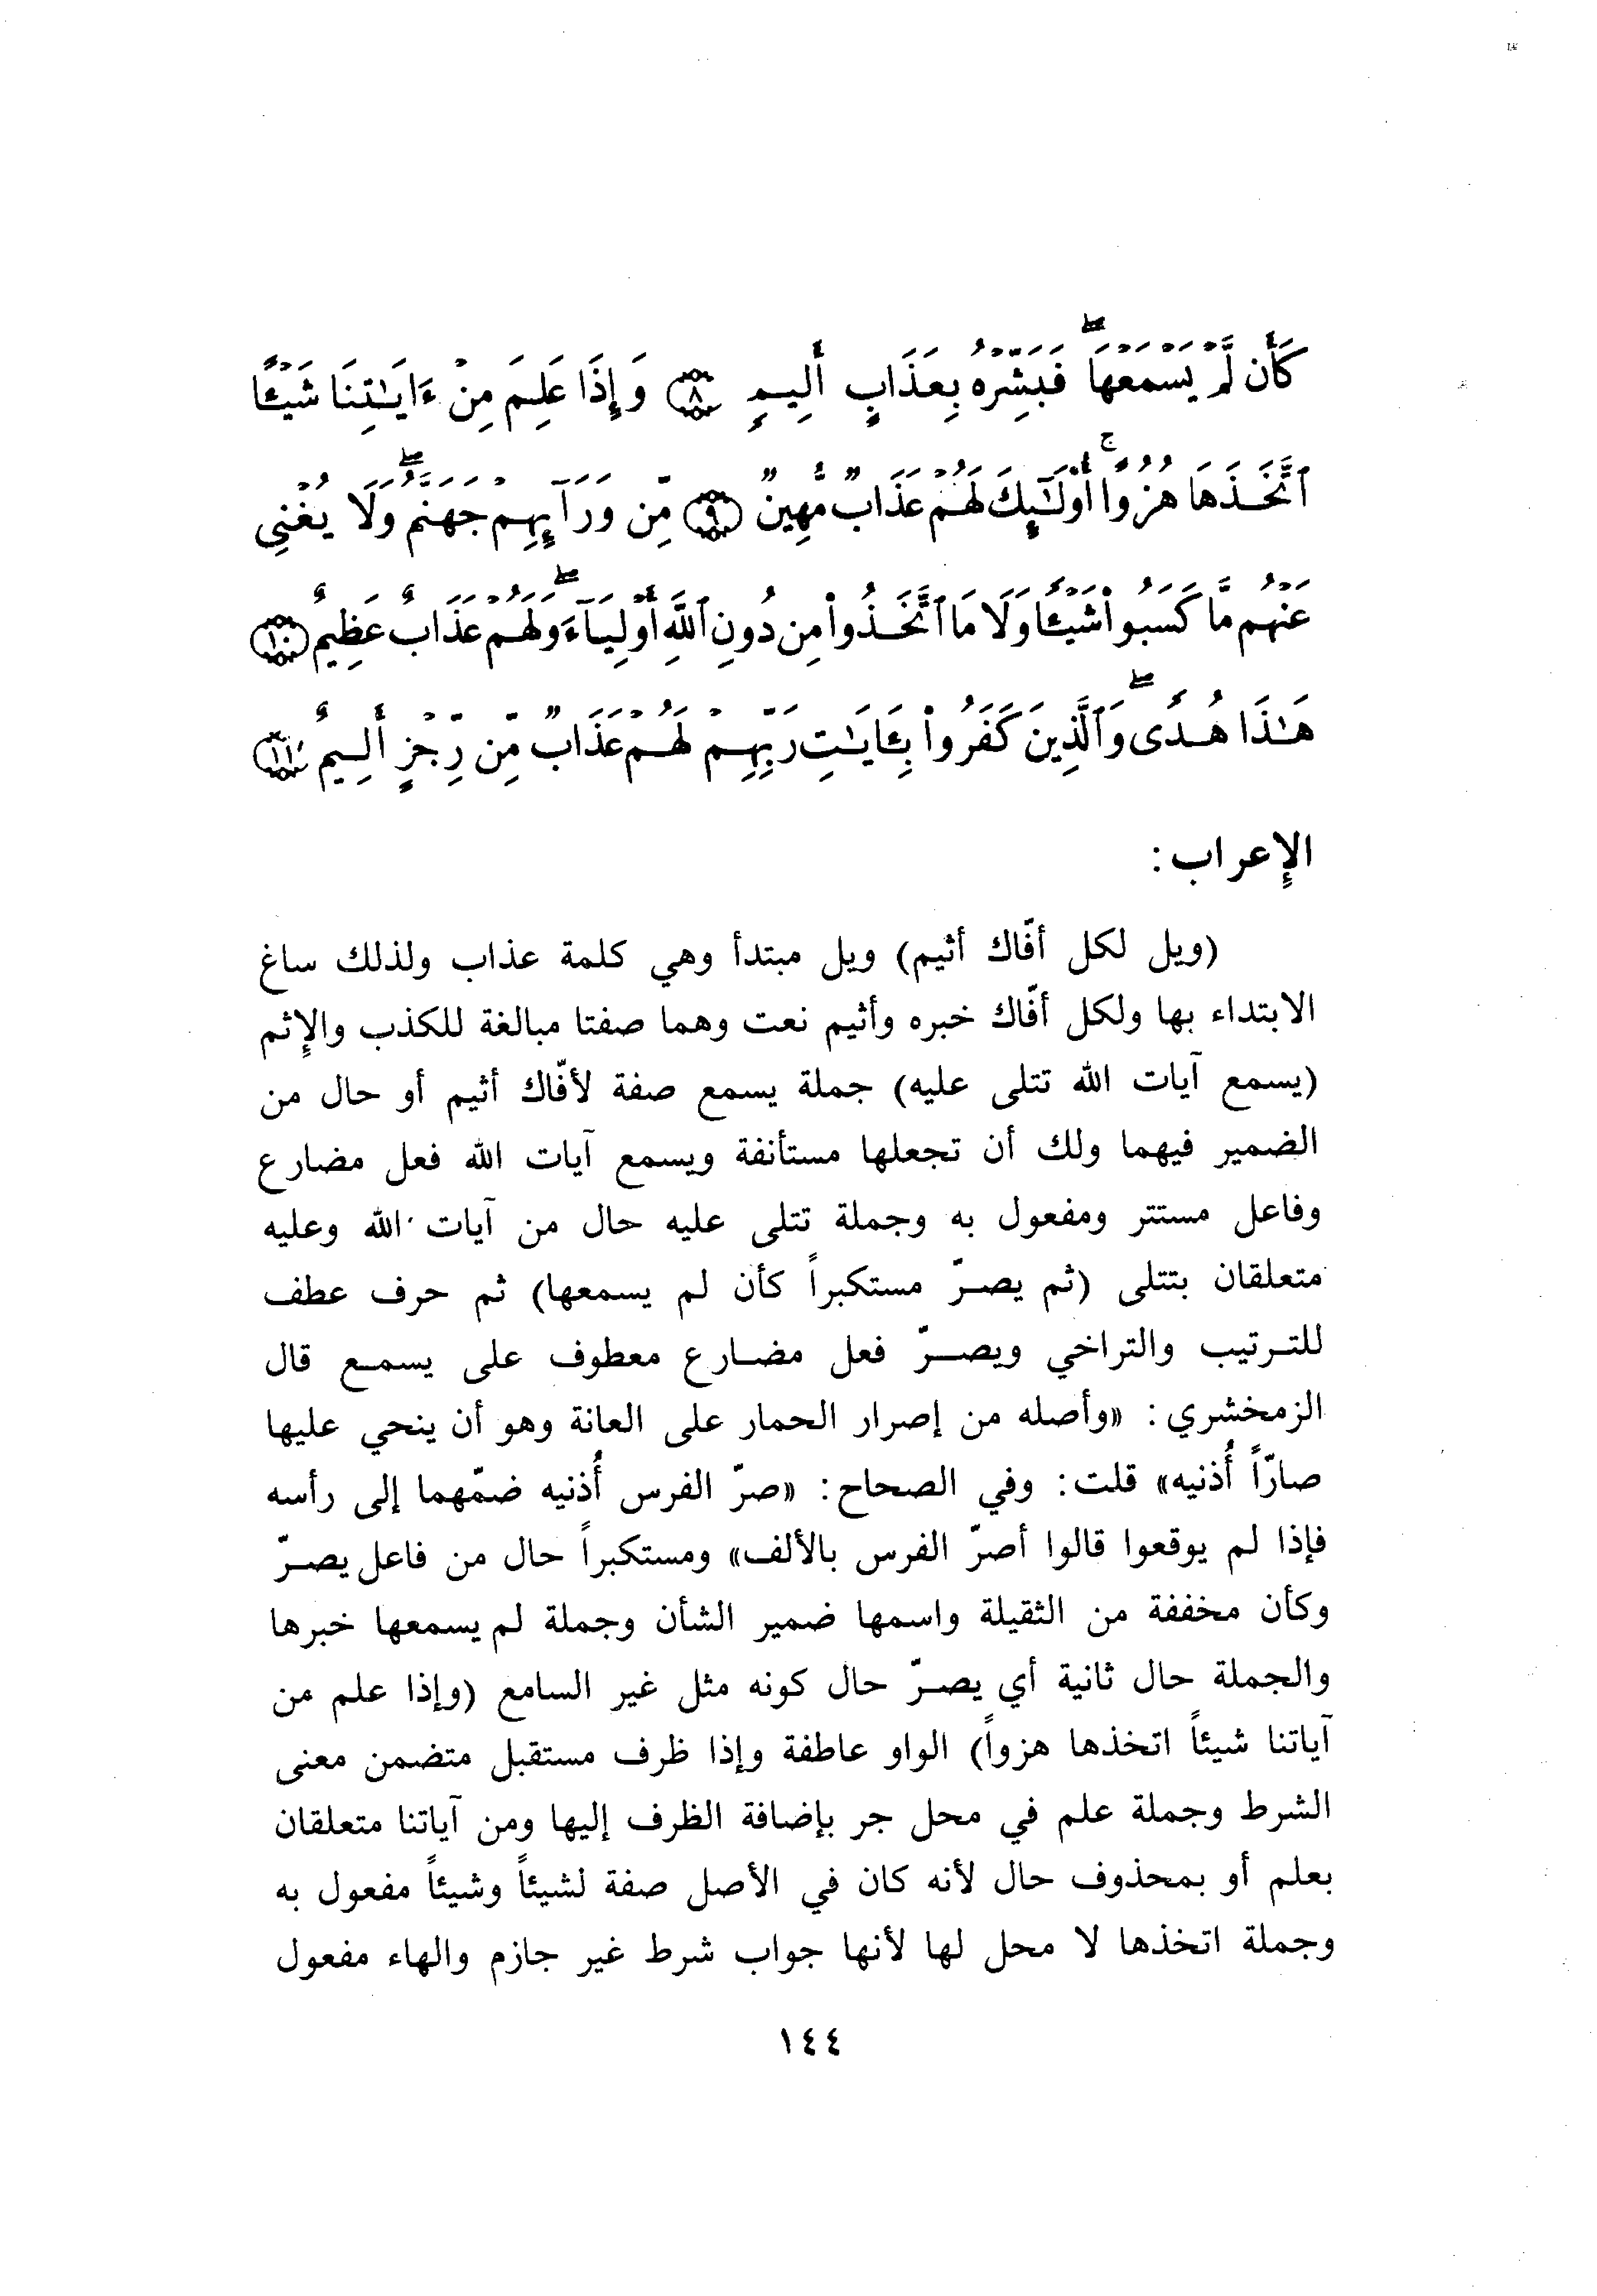 كَأَن لَّمْ يَسْمَعْهَا ۖ فَبَشِّرْهُ بِعَذَابٍ أَلِيمٍ ﴿٨﴾ وَإِذَا عَلِمَ مِنْ ءَايَـٰتِنَا شَيْـًٔا
ٱتَّخَذَهَا هُزُوًا ۚ أُو۟لَـٰٓئِكَ لَهُمْ عَذَابٌ مُّهِينٌ ﴿٩﴾ مِّن وَرَآئِهِمْ جَهَنَّمُ ۖ وَلَا يُغْنِى
عَنْهُم مَّا كَسَبُوا۟ شَيْـًٔا وَلَا مَا ٱتَّخَذُوا۟ مِن دُونِ ٱللَّهِ أَوْلِيَآءَ ۖ وَلَهُمْ عَذَابٌ عَظِيمٌ ﴿١٠﴾
هَـٰذَا هُدًى ۖ وَٱلَّذِينَ كَفَرُوا۟ بِـَٔايَـٰتِ رَبِّهِمْ لَهُمْ عَذَابٌ مِّن رِّجْزٍ أَلِيمٌ ﴿١١﴾
الإِعراب :
(ويل لكل أفّاك أثيم) ويل مبتدأ وهي كلمة عذاب ولذلك ساغ
الابتداء بها ولكل أفّاك خبره وأثيم نعت وهما صفتا مبالغة للكذب والإِثم
(يسمع آيات الله تتلى عليه) جملة يسمع صفة لأفّاك أثيم أو حال من
الضمير فيهما ولك أن تجعلها مستأنفة ويسمع آيات الله فعل مضارع
وفاعل مستتر ومفعول به وجملة تتلى عليه حال من آيات الله وعليه
متعلقان بتتلى (ثم يصرّ مستكبراً كأن لم يسمعها) ثم حرف عطف
للترتيب والتراخي ويصرّ فعل مضارع معطوف على يسمع قال
الزمخشري : «وأصله من إصرار الحمار على العانة وهو أن ينحي عليها
صارّاً أُذنيه» قلت : وفي الصحاح : «صرّ الفرس أُذنيه ضمّهما إلى رأسه
فإذا لم يوقعوا قالوا أصرّ الفرس بالألف» ومستكبراً حال من فاعل يصرّ
وكأن مخففة من الثقيلة واسمها ضمير الشأن وجملة لم يسمعها خبرها
والجملة حال ثانية أي يصرّ حال كونه مثل غير السامع (وإذا علم من
آياتنا شيئاً اتخذها هزواً) الواو عاطفة وإذا ظرف مستقبل متضمن معنى
الشرط وجملة علم في محل جر بإضافة الظرف إليها ومن آياتنا متعلقان
بعلم أو بمحذوف حال لأنه كان في الأصل صفة لشيئاً وشيئاً مفعول به
وجملة اتخذها لا محل لها لأنها جواب شرط غير جازم والهاء مفعول
١٤٤